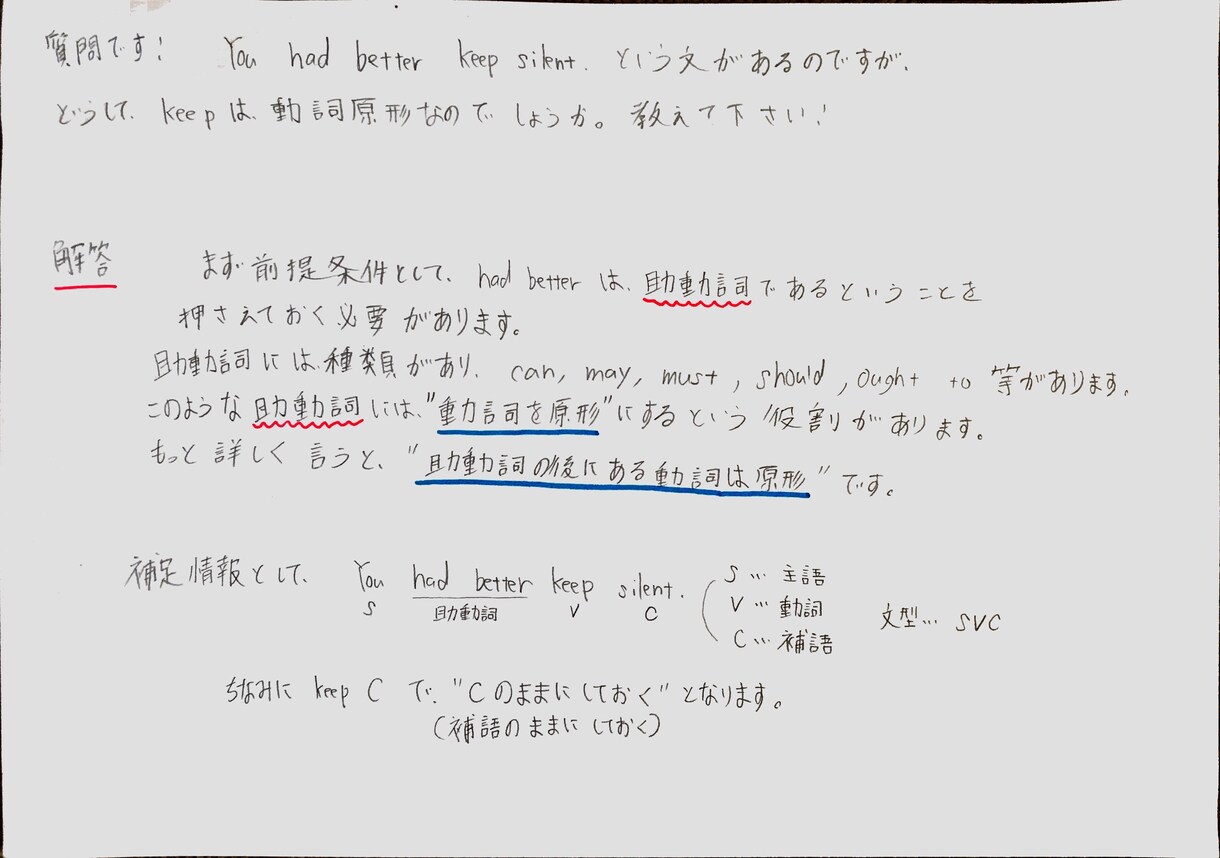 質問です! You had better keep silent. という文があるのですが、
どうして、keepは、動詞原形なのでしょうか。教えて下さい!
解答 まず前提条件として、had better は、助動詞であるということを
押さえておく必要があります。
助動詞には、種類があり、can, may, must, should, ought to 等があります。
このような助動詞には、"動詞を原形"にするという役割があります。
もっと詳しく言うと、"助動詞の後にある動詞は原形"です。
補足情報として、 You had better keep silent.
S 助動詞 V C
S… 主語
V… 動詞
C… 補語
文型… SVC
ちなみに keep C で、"Cのままにしておく"となります。
(補語のままにしておく)